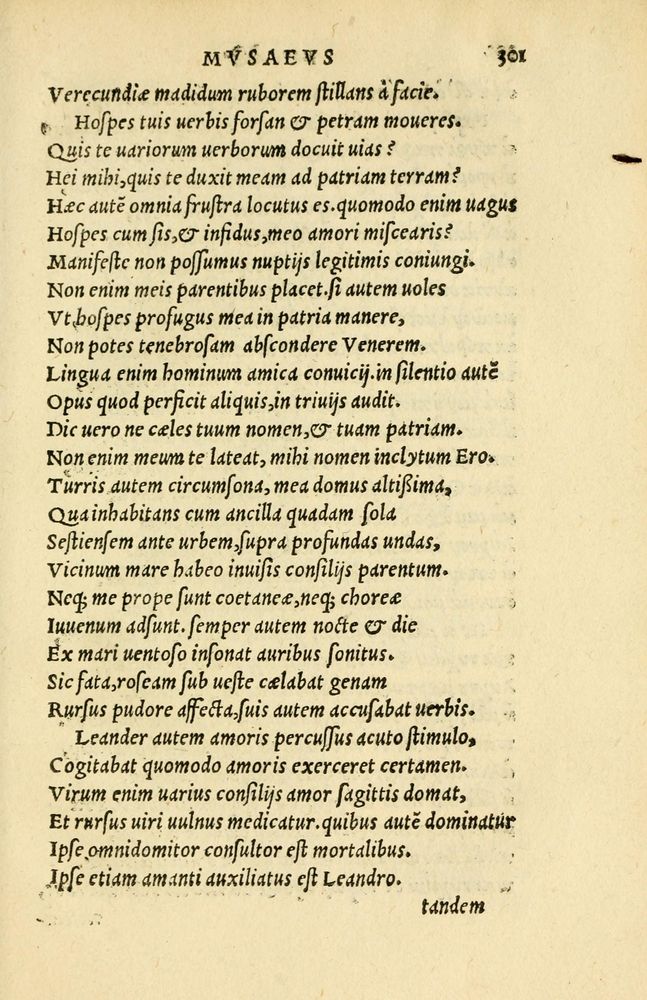 MVSAEVS 301
Verecundiæ madidum ruborem ſtillans à facie.
Hoſpes tuis uerbis forſan & petram moueres.
Quis te uariorum uerborum docuit uias?
Hei mihi, quis te duxit meam ad patriam terram?
Hæc autē omnia fruſtra locutus es. quomodo enim uagus
Hoſpes cum ſis, & infidus, meo amori miſcearis?
Manifeſte non poſſumus nuptijs legitimis coniungi.
Non enim meis parentibus placet. ſi autem uoles
Vt hoſpes profugus mea in patria manere,
Non potes tenebroſam abſcondere Venerem.
Lingua enim hominum amica conuicij. in ſilentio autē
Opus quod perficit aliquis, in triuijs audit.
Dic uero ne cæles tuum nomen, & tuam patriam.
Non enim meum te lateat, mihi nomen inclytum Ero.
Turris autem circumſona, mea domus altißima,
Qua inhabitans cum ancilla quadam ſola
Seſtienſem ante urbem, ſupra profundas undas,
Vicinum mare habeo inuiſis conſilijs parentum.
Neq; me prope ſunt coetaneæ, neq; choreæ
Iuuenum adſunt. ſemper autem nocte & die
Ex mari uentoſo inſonat auribus ſonitus.
Sic fata, roſeam ſub ueſte cælabat genam
Rurſus pudore affecta, ſuis autem accuſabat uerbis.
Leander autem amoris percuſſus acuto ſtimulo,
Cogitabat quomodo amoris exerceret certamen.
Virum enim uarius conſilijs amor ſagittis domat,
Et rurſus uiri uulnus medicatur. quibus autē dominatur
Ipſe omnidomitor conſultor eſt mortalibus.
Ipſe etiam amanti auxiliatus eſt Leandro.
tandem